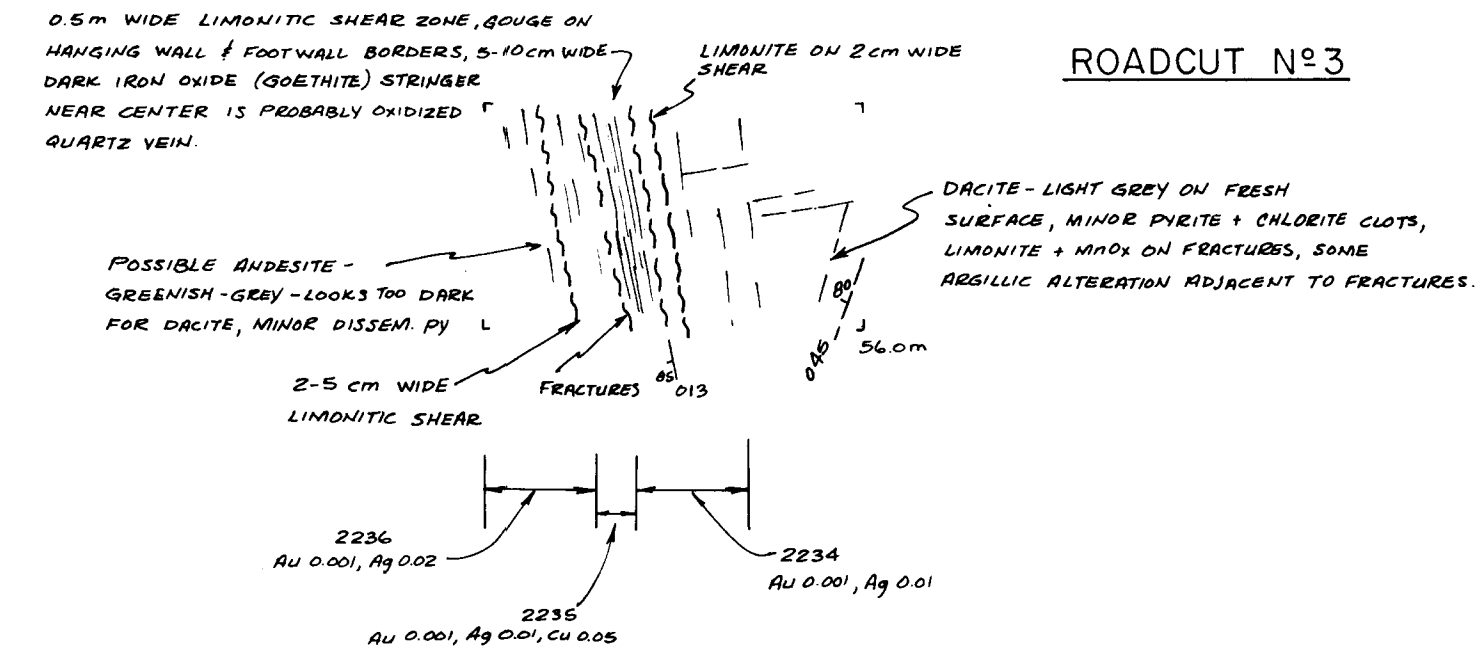 ROADCUT Nº3
0.5m WIDE LIMONITIC SHEAR ZONE, GOUGE ON
HANGING WALL & FOOTWALL BORDERS, 5-10cm WIDE
DARK IRON OXIDE (GOETHITE) STRINGER
NEAR CENTER IS PROBABLY OXIDIZED
QUARTZ VEIN.
LIMONITE ON 2cm WIDE
SHEAR
DACITE - LIGHT GREY ON FRESH
SURFACE, MINOR PYRITE + CHLORITE CLOTS,
LIMONITE + MnOx ON FRACTURES, SOME
ARGILLIC ALTERATION ADJACENT TO FRACTURES.
POSSIBLE ANDESITE -
GREENISH-GREY-LOOKS TOO DARK
FOR DACITE, MINOR DISSEM. PY
80
045
56.0m
2-5 cm WIDE
LIMONITIC SHEAR
FRACTURES
85
013
2236
Au 0.001, Ag 0.02
2234
Au 0.001, Ag 0.01
2235
Au 0.001, Ag 0.01, Cu 0.05